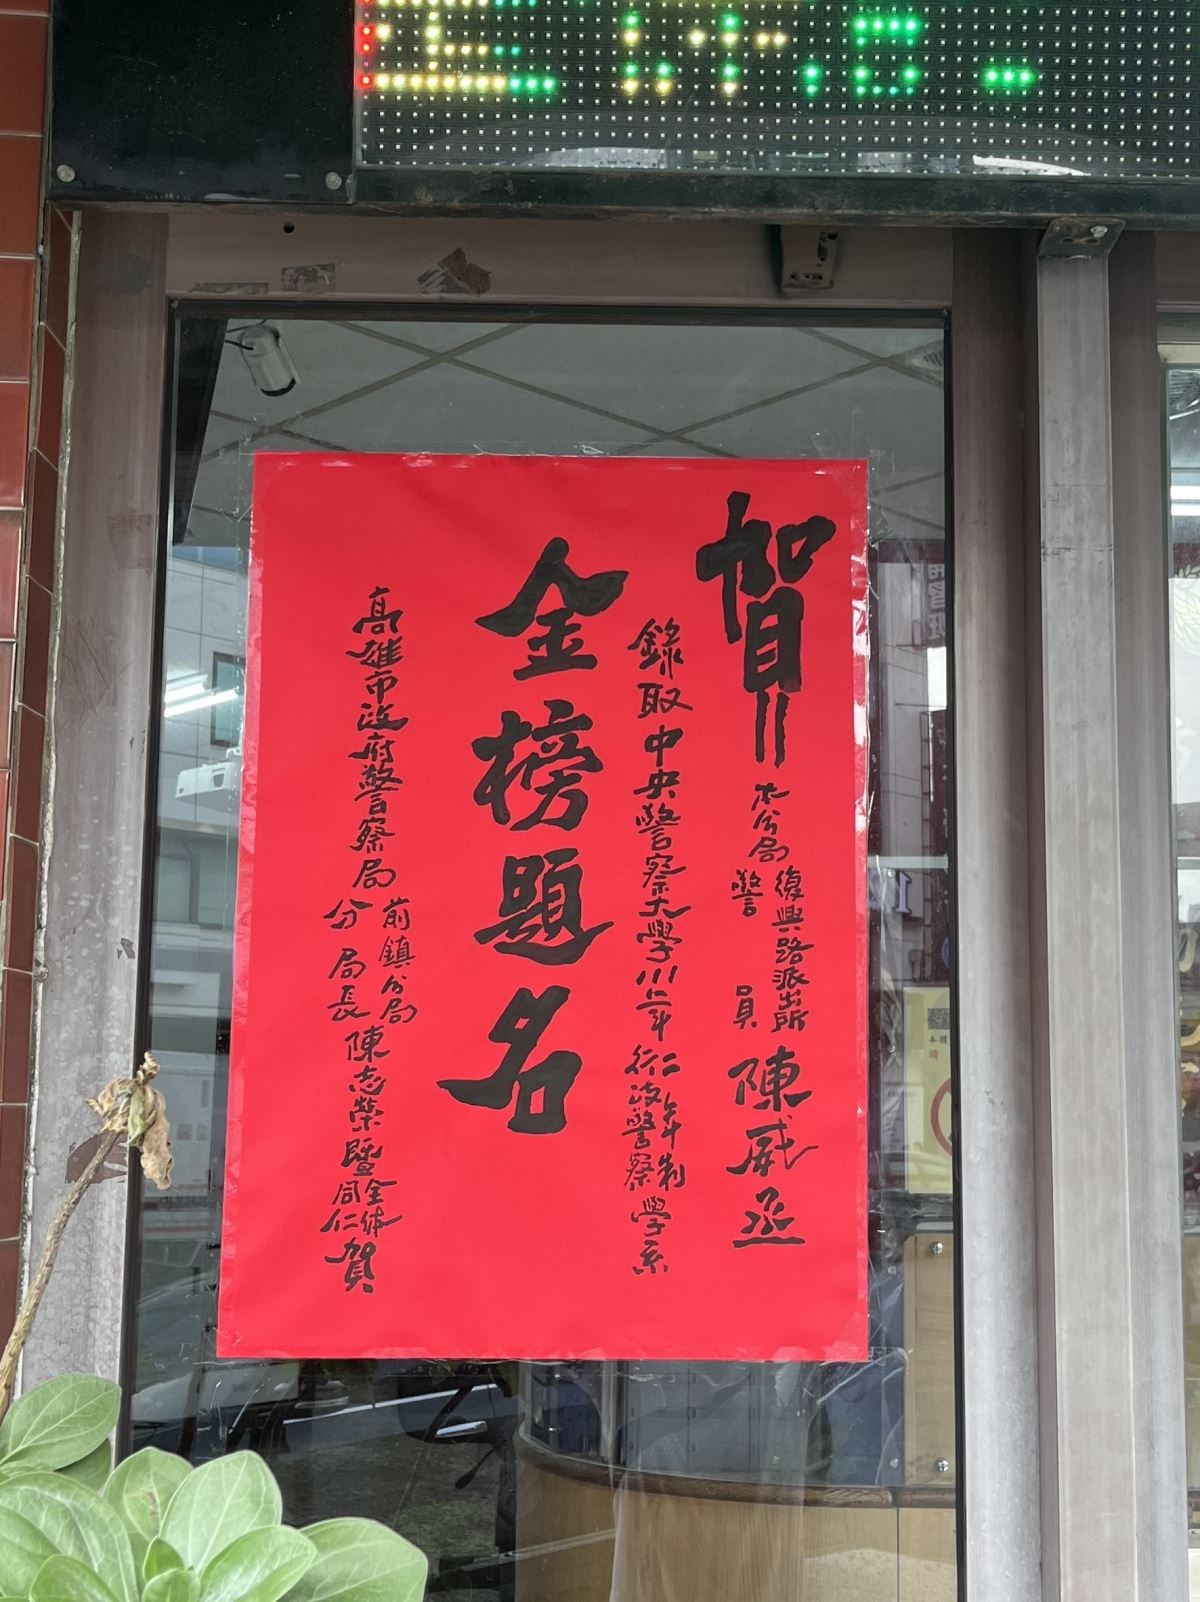 賀
本分局復興路派出所警員陳威丞
錄取中央警察大學111年二年制行政警察學系
金榜題名
高雄市政府警察局前鎮分局分局長陳志榮暨全体同仁賀